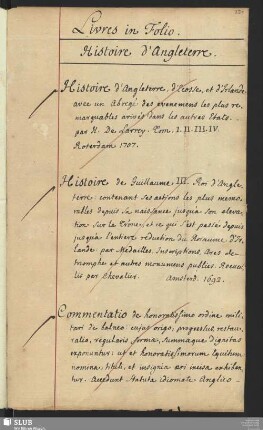 Livres in Folio.
Histoire d'Angleterre.
Histoire d'Angleterre, d'Ecosse, et d'Irlande
avec un Abregé des evenemens les plus re-
marquables arrivés dans les autres Etats.
par M. De Larrey. Tom. I. II. III. IV.
Roterdam 1707.
Histoire de Guillaume III. Roi d'Angle-
terre: contenant ses actions les plus memo-
rables depuis sa naissance jusqu'a son eleva-
tion sur le Trône, et ce qui s'est passé depuis
jusqu'a l'entiere reduction du Royaume d'Ir-
lande. par Medailles, Inscriptions, Arcs de
triomphe et autres monumens publics. Recueil-
lit par Chevalier. Amsterd. 1692.
Commentatio de honoratissimo ordine mili-
tari de balneo: cujus origo, progressus, restau-
ratio, regularis forma, summaque dignitas
exponuntur: ut et honoratissimorum Equitum
nomina, tituli, et insignia aeri incisa exhiben-
tur. Accedunt Statuta idiomate Anglico-